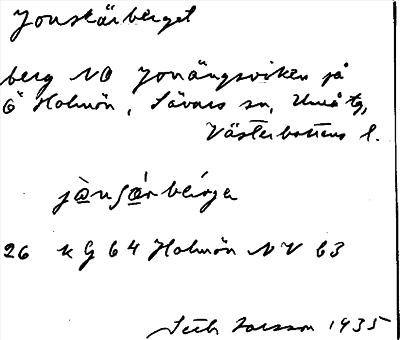 Jonskärberget
berg NO Jonängsviken på
ö Holmön, Sävars sn, Umeå tg,
Västerbottens l.
26 KG 64 Holmön NV 63
1935